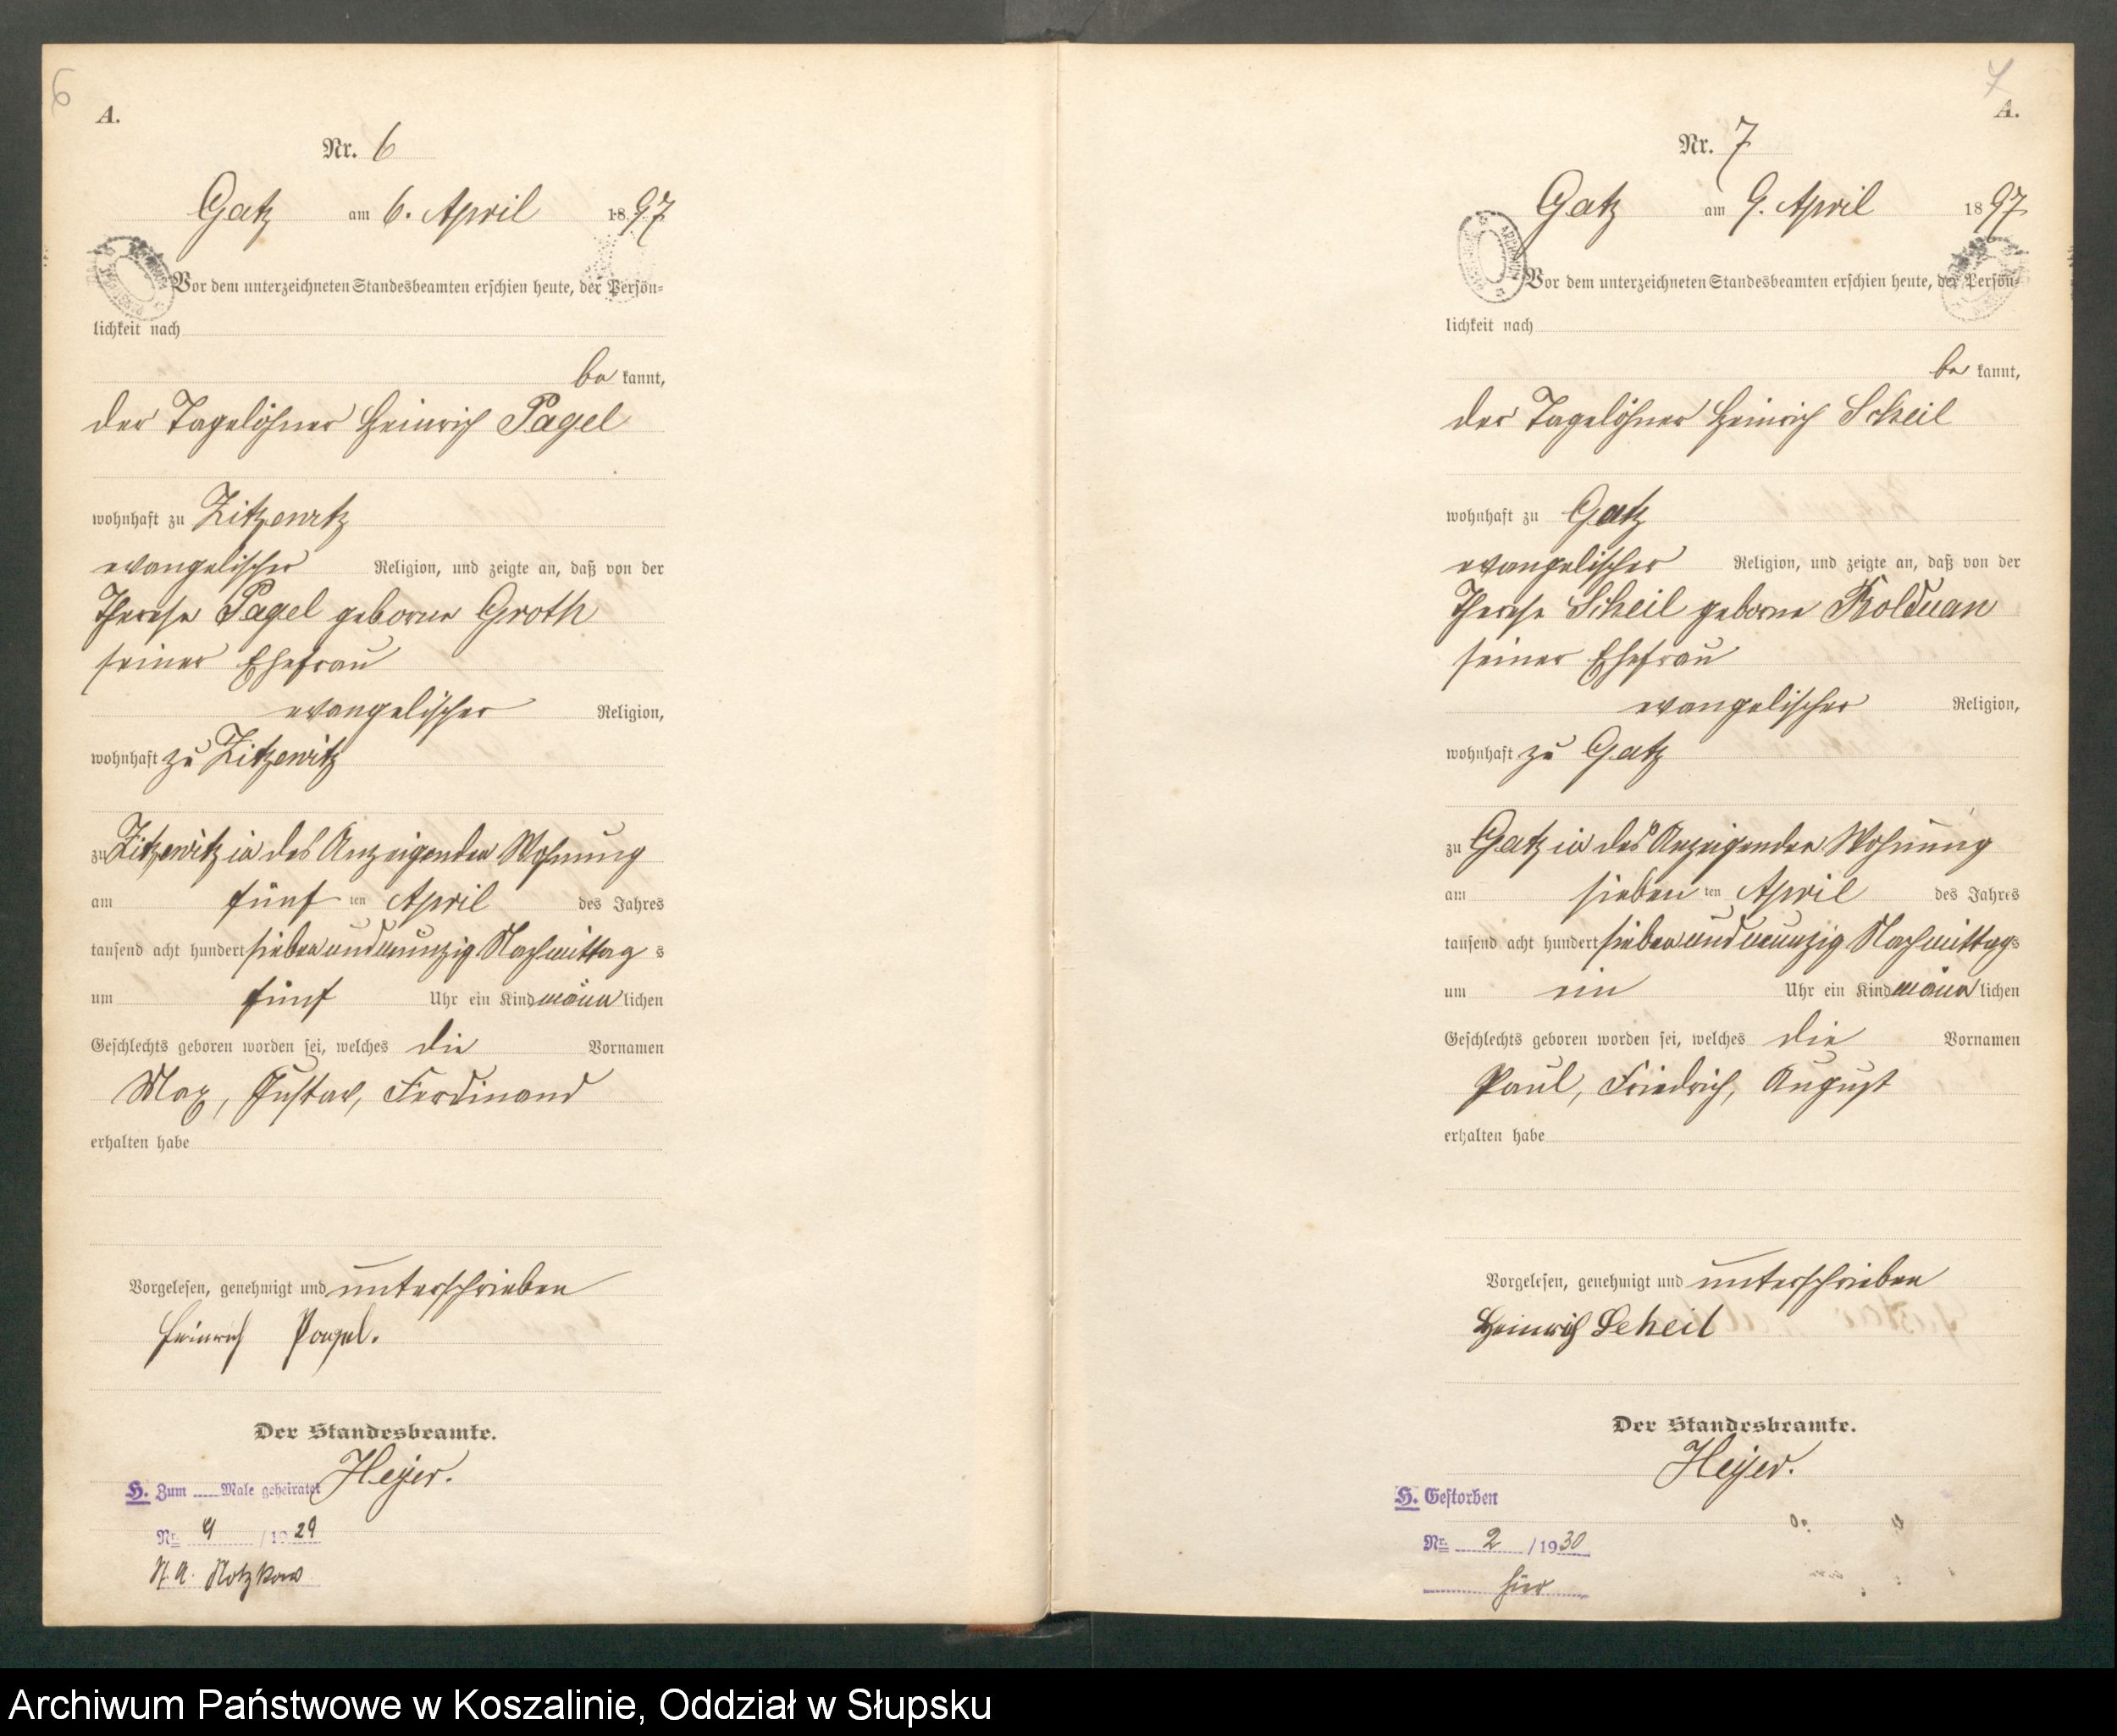 6
A.
Nr. 6
Gatz am 6. April 1897
Vor dem unterzeichneten Standesbeamten erschien heute, der Persön-
lichkeit nach
be kannt,
der Tagelöhner Heinrich Pagel
wohnhaft zu Zitzewitz
evangelischer Religion, und zeigte an, daß von der
Therese Pagel geborne Groth
seiner Ehefrau
evangelischer Religion,
wohnhaft zu Zitzewitz
zu Zitzewitz in des Anzeigenden Wohnung
am fünf ten April des Jahres
tausend acht hundert siebenundneunzig Nachmittag s
um fünf Uhr ein Kind männ lichen
Geschlechts geboren worden sei, welches die Vornamen
Max, Gustav, Ferdinand
erhalten habe
Vorgelesen, genehmigt und unterschrieben
Heinrich Pagel.
Der Standesbeamte.
Heyer.
H. Zum Male geheiratet
Nr. 4 /1929
7
A.
Nr. 7
Gatz am 9. April 1897
Vor dem unterzeichneten Standesbeamten erschien heute, der Persön-
lichkeit nach
be kannt,
der Tagelöhner Heinrich Scheil
wohnhaft zu Gatz
evangelischer Religion, und zeigte an, daß von der
Therese Scheil geborne Kolduan
seiner Ehefrau
evangelischer Religion,
wohnhaft zu Gatz
zu Gatz in des Anzeigenden Wohnung
am sieben ten April des Jahres
tausend acht hundert siebenundneunzig Nachmittags
um ein Uhr ein Kind männ lichen
Geschlechts geboren worden sei, welches die Vornamen
Paul, Friedrich, August
erhalten habe
Vorgelesen, genehmigt und unterschrieben
Heinrich Scheil
Der Standesbeamte.
Heyer.
H. Gestorben
Nr. 2 /1930
hier
Archiwum Państwowe w Koszalinie, Oddział w Słupsku